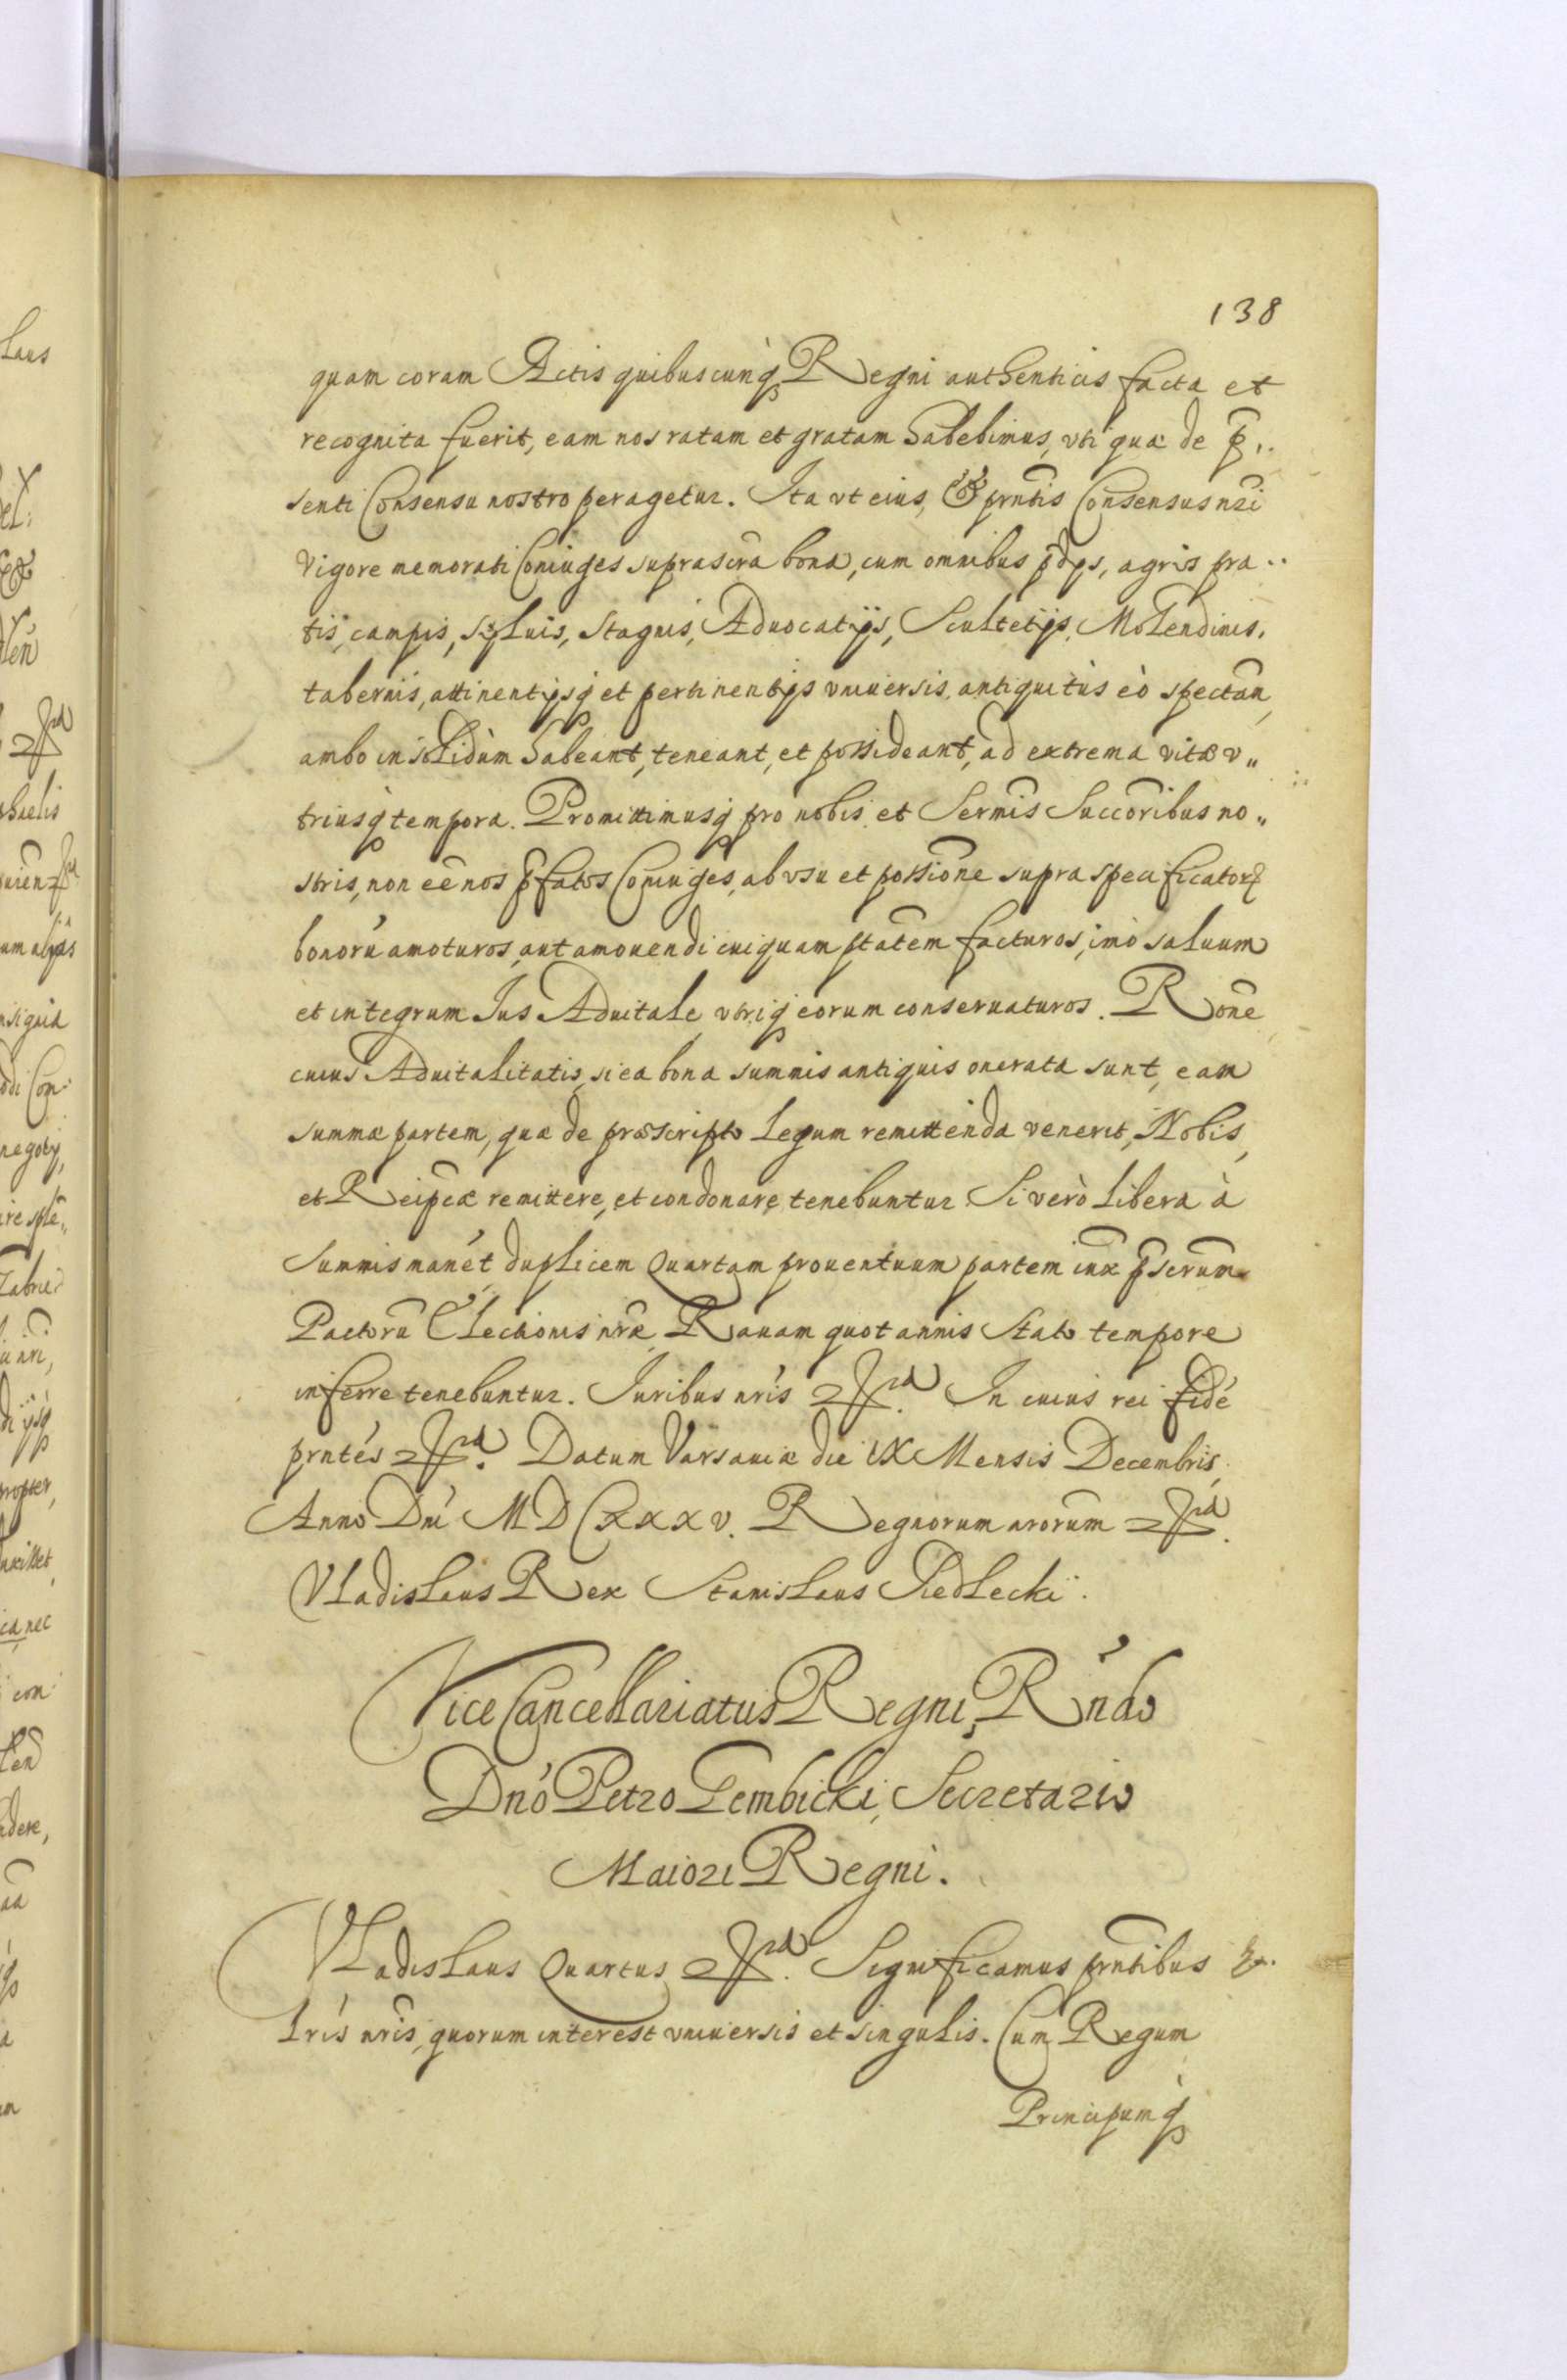 138
quam coram Actis quibuscunq́ Regni authenticis facta et
recognita fuerit, eam nos ratam et gratam habebimus, vti quæ de p̄,,
senti Consensu nostro peragetur. Ita vt eius, & prñtis Consensus nr̃i
Vigore memorati Coniuges suprascr̃a bona, cum omnibus p̃dijs, agris pra..
tis, campis, syluis, stagnis, Aduocatijs, Scultetijs, Molendinis,
tabernis, attinentijsq́ et pertinentijs vniuersis, antiquitùs eò spectañ,
ambo in solidùm habeant, teneant, et possideant, ad extrema vitæ v,,
triusq́ tempora. Promittimusq́ pro nobis et Sermĩs Succõribus no,,
stris, non eẽ nos p̃fatos Coniuges, ab vsu et possiõne supra specificatorꝝ
bonorũ amoturos, aut amouendi cuiquam p̃tatem facturos, imò saluum
et integrum Ius Aduitale vtriq́ eorum conseruaturos. Rõne
cuius Aduitalitatis, si ea bona summis antiquis onerata sunt, eam
summæ partem, quæ de præscripto legum remittenda venerit, Nobis,
et Reipcæ remittere, et condonare tenebuntur. Si verò libera à
summis manét duplicem Quartam prouentuum partem iux̃ p̃scr̃um
Pactorũ Electionis nr̃æ Rauam quotannis stato tempore
inferre tenebuntur. Iuribus nr̃is In cuius rei fidé
prñtés Datum Varsauiæ die IX Mensis Decembris,
Anno Dñi MDCXXXV. Regnorum nr̃orum
Vladislaus Rex Stanislaus Siedlecki.
Vice Cancellariatus Regni, Rñdo
Dño Petro Gembicki, Secretario
Maiori Regni.
Vladislaus Quartus Significamus prñtibus &.
lrı́s nrı́s, quorum interest vniuersis et singulis. Cum Regum
Principumq́